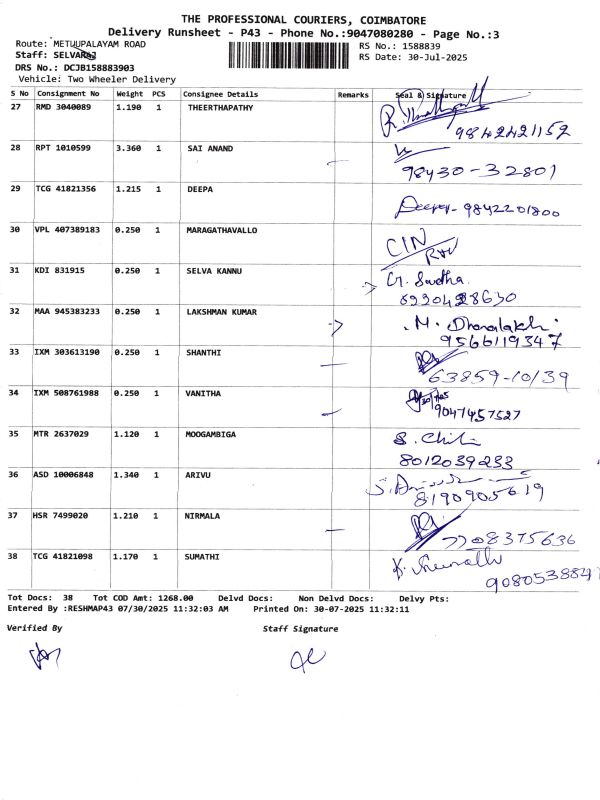 THE PROFESSIONAL COURIERS, COIMBATORE
Delivery Runsheet - P43 - Phone No.:9047080280 - Page No.:3
Route: METUUPALAYAM ROAD
RS No.: 1588839
Staff: SELVARAJ
RS Date: 30-Jul-2025
DRS No.: DCJB158883903
Vehicle: Two Wheeler Delivery
S No Consignment No Weight PCS Consignee Details Remarks Seal & Signature
27 RMD 3040089 1.190 1 THEERTHAPATHY
9842421152
28 RPT 1010599 3.360 1 SAI ANAND
98430-32801
29 TCG 41821356 1.215 1 DEEPA
Deepa - 9842201800
30 VPL 407389183 0.250 1 MARAGATHAVALLO
CIN
31 KDI 831915 0.250 1 SELVA KANNU
G. Sudha
32 MAA 945383233 0.250 1 LAKSHMAN KUMAR
M. Dhanalakshi
9566119347
33 IXM 303613190 0.250 1 SHANTHI
63859-10139
34 IXM 508761988 0.250 1 VANITHA
9047457527
35 MTR 2637029 1.120 1 MOOGAMBIGA
8012039233
36 ASD 10006848 1.340 1 ARIVU
8190905619
37 HSR 7499020 1.210 1 NIRMALA
7708375636
38 TCG 41821098 1.170 1 SUMATHI
Tot Docs: 38 Tot COD Amt: 1268.00 Delvd Docs: Non Delvd Docs: Delvy Pts:
Entered By :RESHMAP43 07/30/2025 11:32:03 AM Printed On: 30-07-2025 11:32:11
Verified By Staff Signature